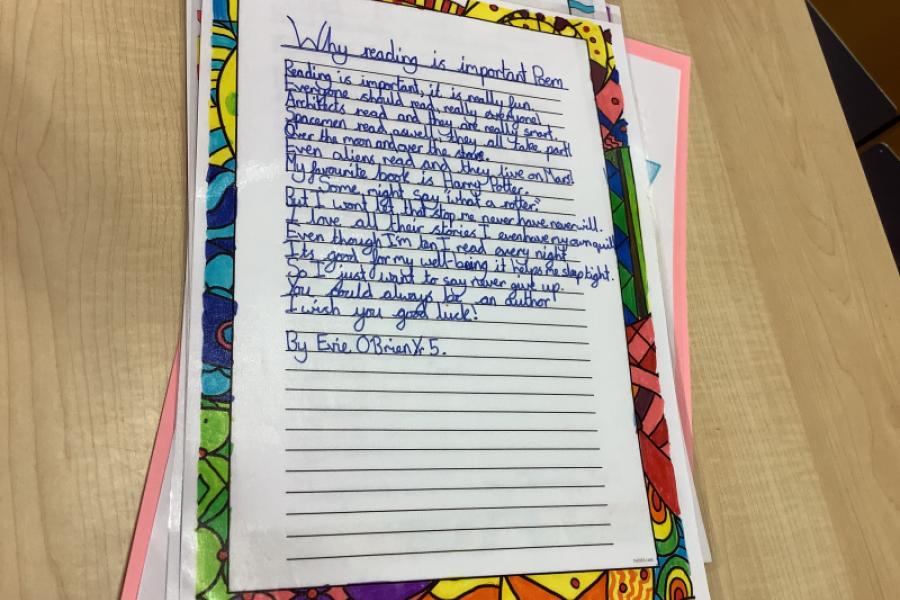 Why reading is important Poem
Reading is important, it is really fun.
Everyone should read really everyone!
Architects read and they are really smart.
Spacemen read aswell they all take part!
Over the moon and over the stars.
Even aliens read and they live on Mars!
My favourite book is Harry Potter.
Some might say "what a rotter."
But I wont let that stop me never have never will.
I love all their stories I even have my own quill
Even though I'm ten I read every night
Its good for my well-being it helps me sleep tight.
So I just want to say never give up.
You could always be an author
I wish you good luck!
By Evie OBrien Yr 5.